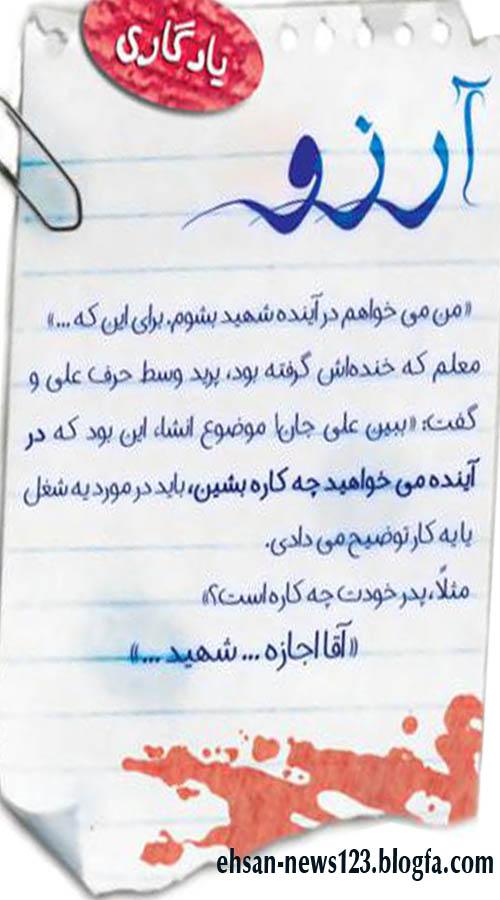 یادگاری
آرزو
«من می خواهم در آینده شهید بشوم. برای این که ...»
معلم که خنده‌اش گرفته بود، پرید وسط حرف علی و
گفت: «ببین علی جان! موضوع انشاء این بود که در
آینده می خواهید چه کاره بشین، باید در مورد یه شغل
یا یه کار توضیح می دادی.
مثلاً، پدر خودت چه کاره است؟»
«آقا اجازه ... شهید ...»
ehsan-news123.blogfa.com